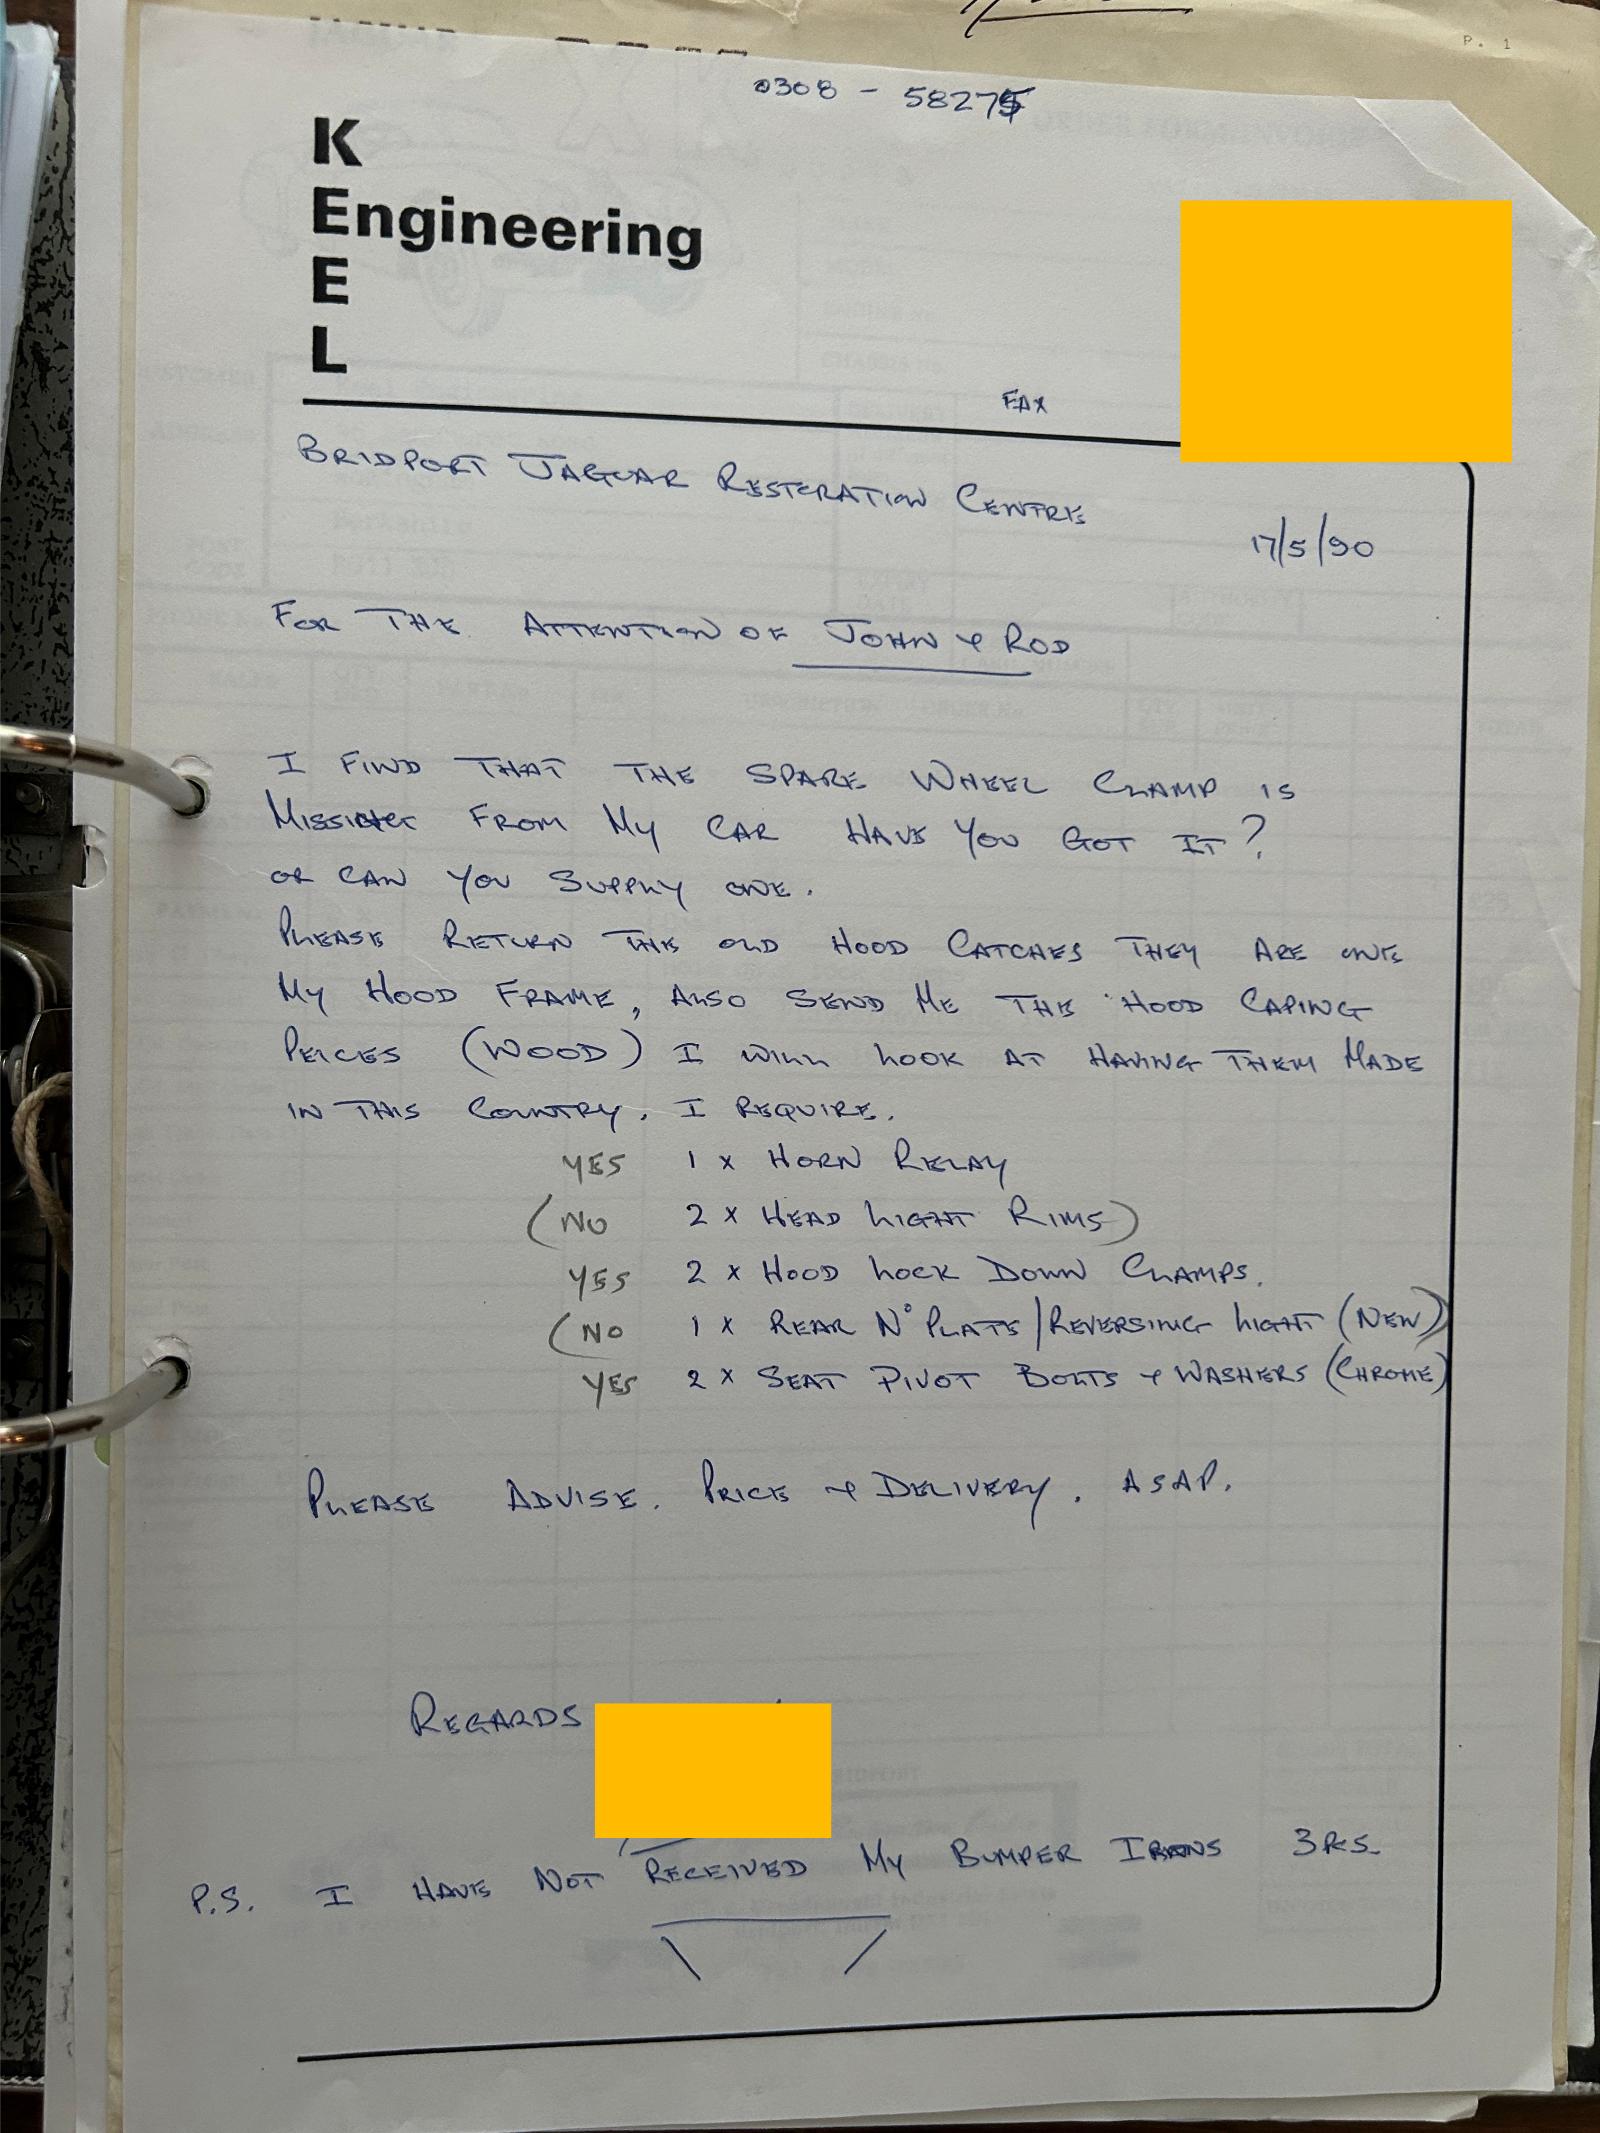 P. 1
0308 - 58275
K
Engineering
E
L
FAX
BRIDPORT JAGUAR RESTORATION CENTRE
17/5/90
FOR THE ATTENTION OF JOHN & ROD
I FIND THAT THE SPARE WHEEL CLAMP IS
MISSING FROM MY CAR HAVE YOU GOT IT?
OR CAN YOU SUPPLY ONE.
PLEASE RETURN THE OLD HOOD CATCHES THEY ARE ONE
MY HOOD FRAME, ALSO SEND ME THE HOOD CAPING
PEICES (WOOD) I WILL LOOK AT HAVING THEM MADE
IN THIS COUNTRY. I REQUIRE.
YES 1 x HORN RELAY
(NO 2 x HEAD LIGHT RIMS)
YES 2 x HOOD LOCK DOWN CLAMPS.
(NO 1 x REAR N° PLATE/REVERSING LIGHT (NEW))
YES 2 x SEAT PIVOT BOLTS & WASHERS (CHROME)
PLEASE ADVISE. PRICE & DELIVERY. ASAP.
REGARDS
P.S. I HAVE NOT RECEIVED MY BUMPER IRONS